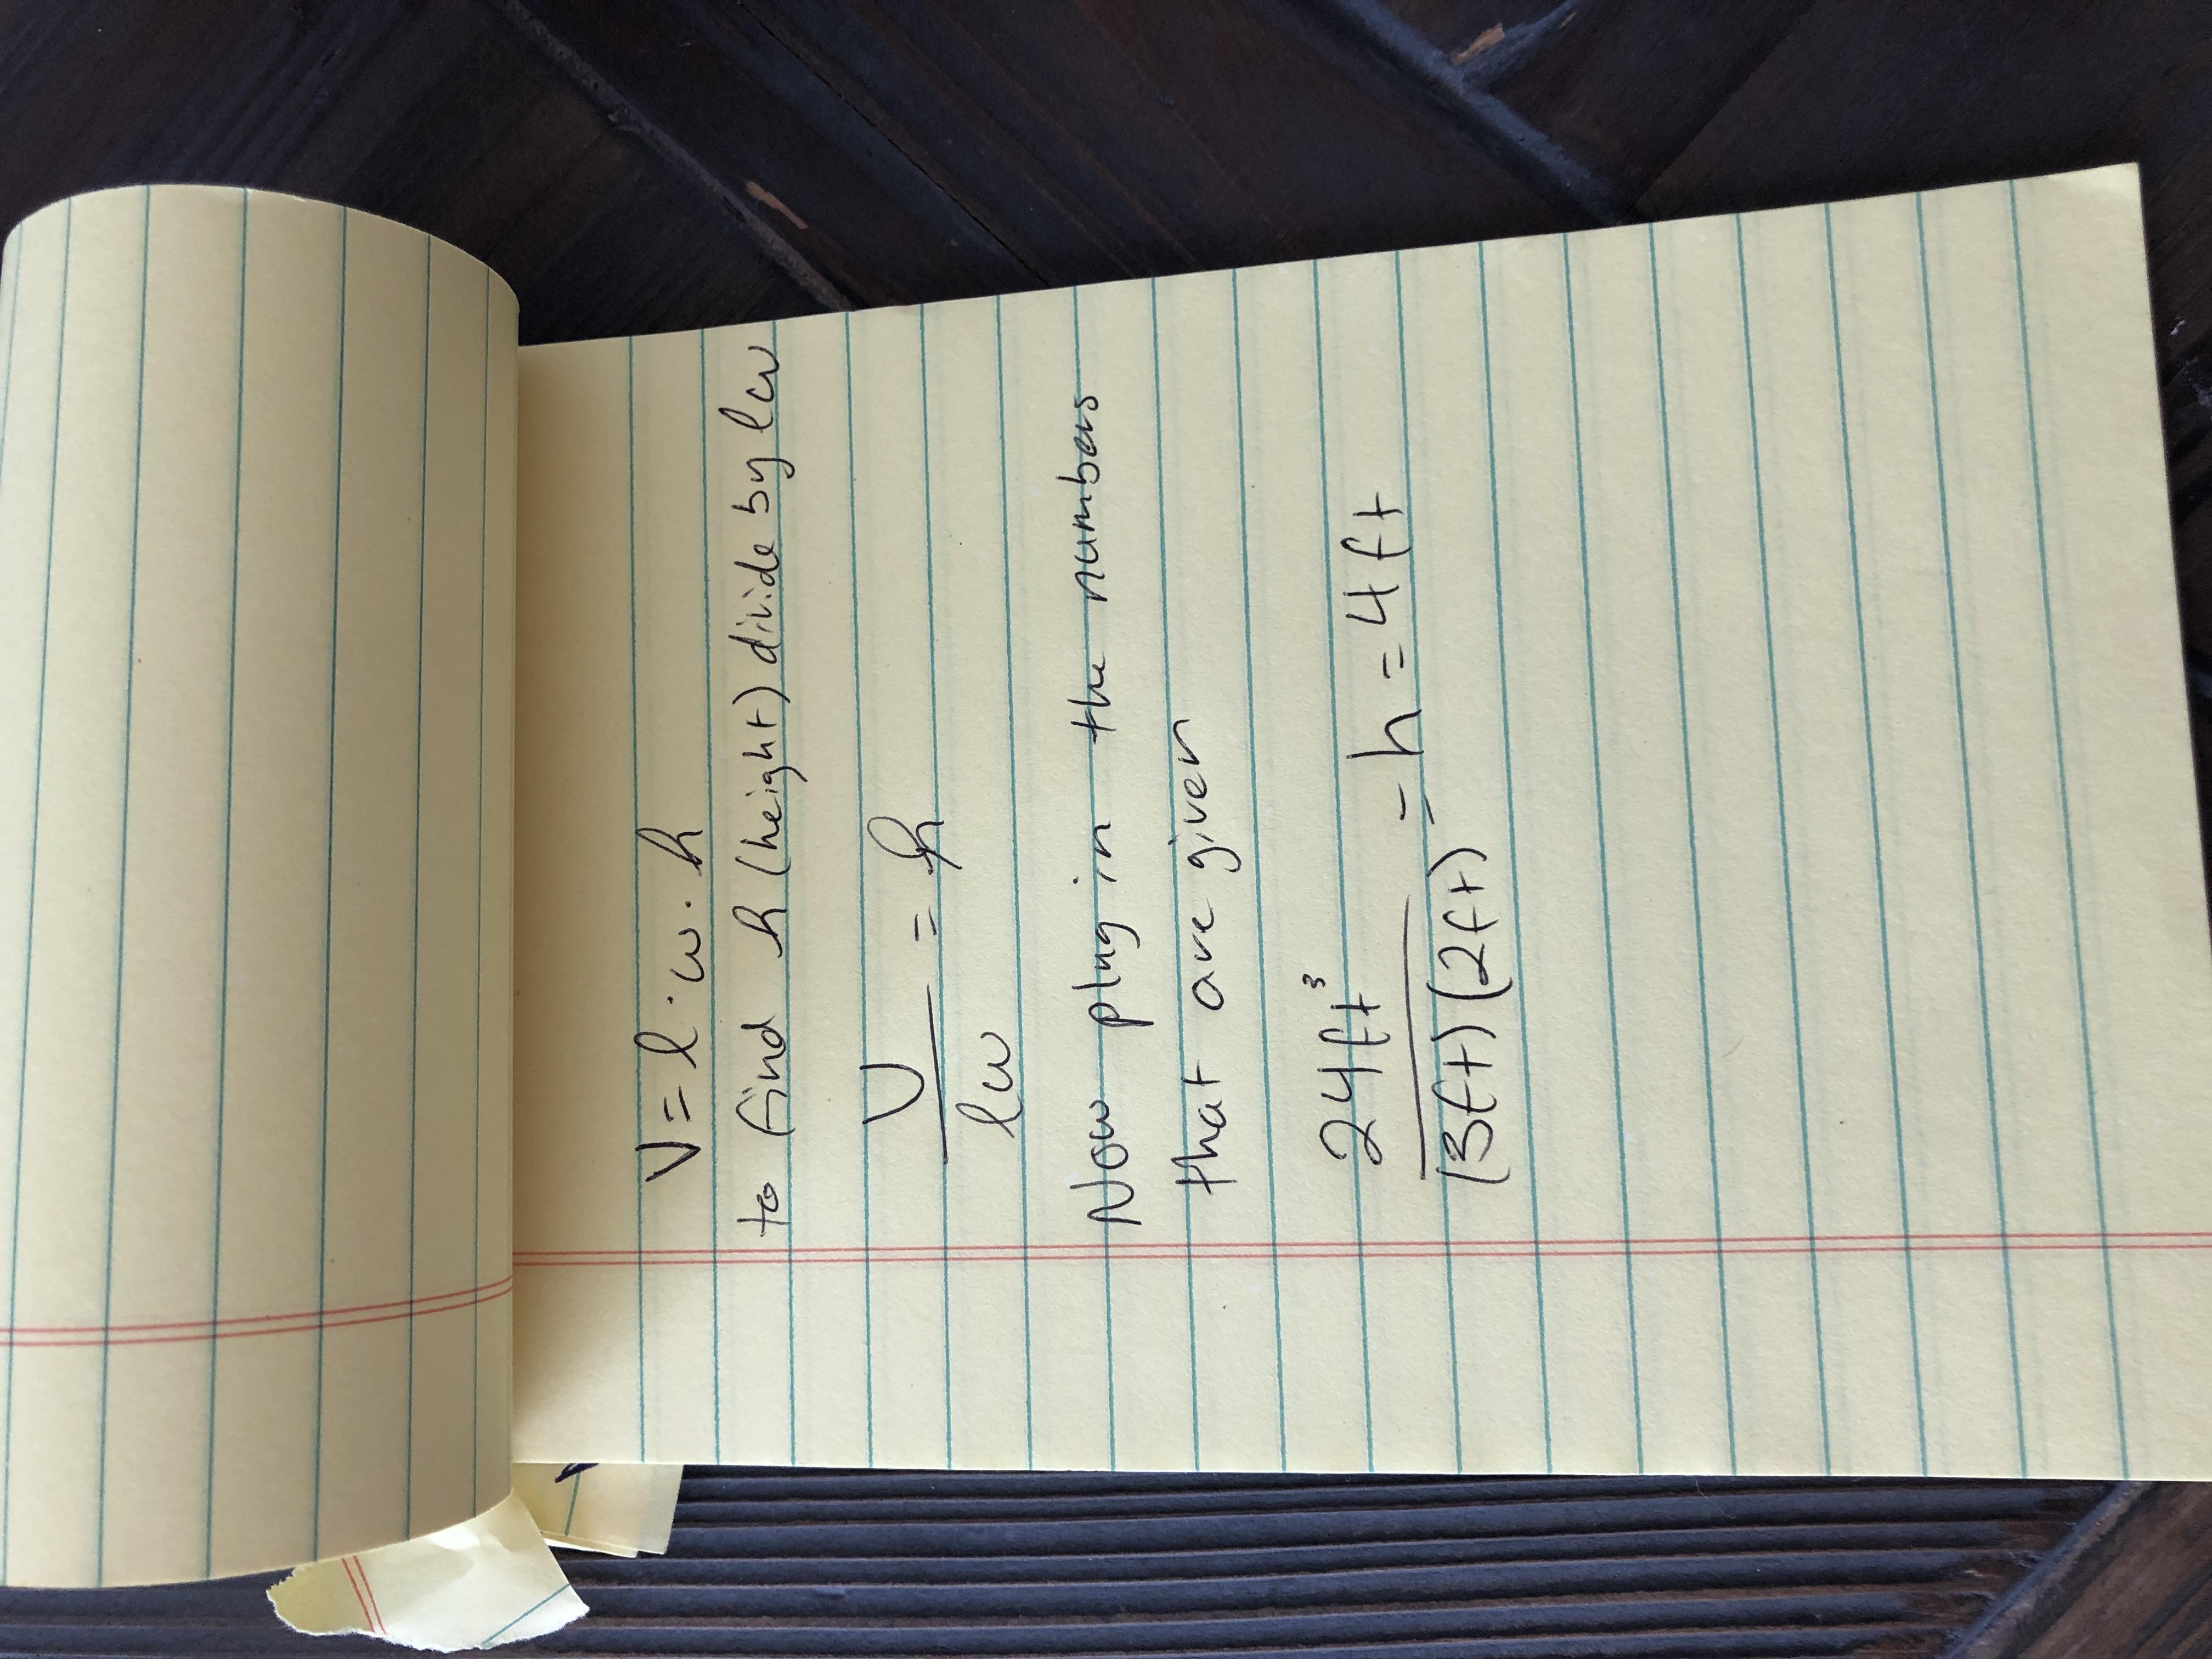 V = l · w · h
to find h (height) divide by lw
V
lw = h
Now plug in the numbers
that are given
24ft³
(3ft)(2ft) = h = 4ft